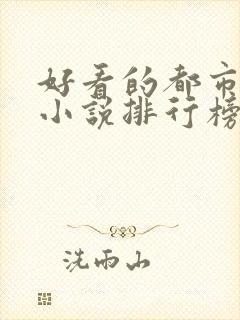 好看的都市
小说排行榜
洗雨山